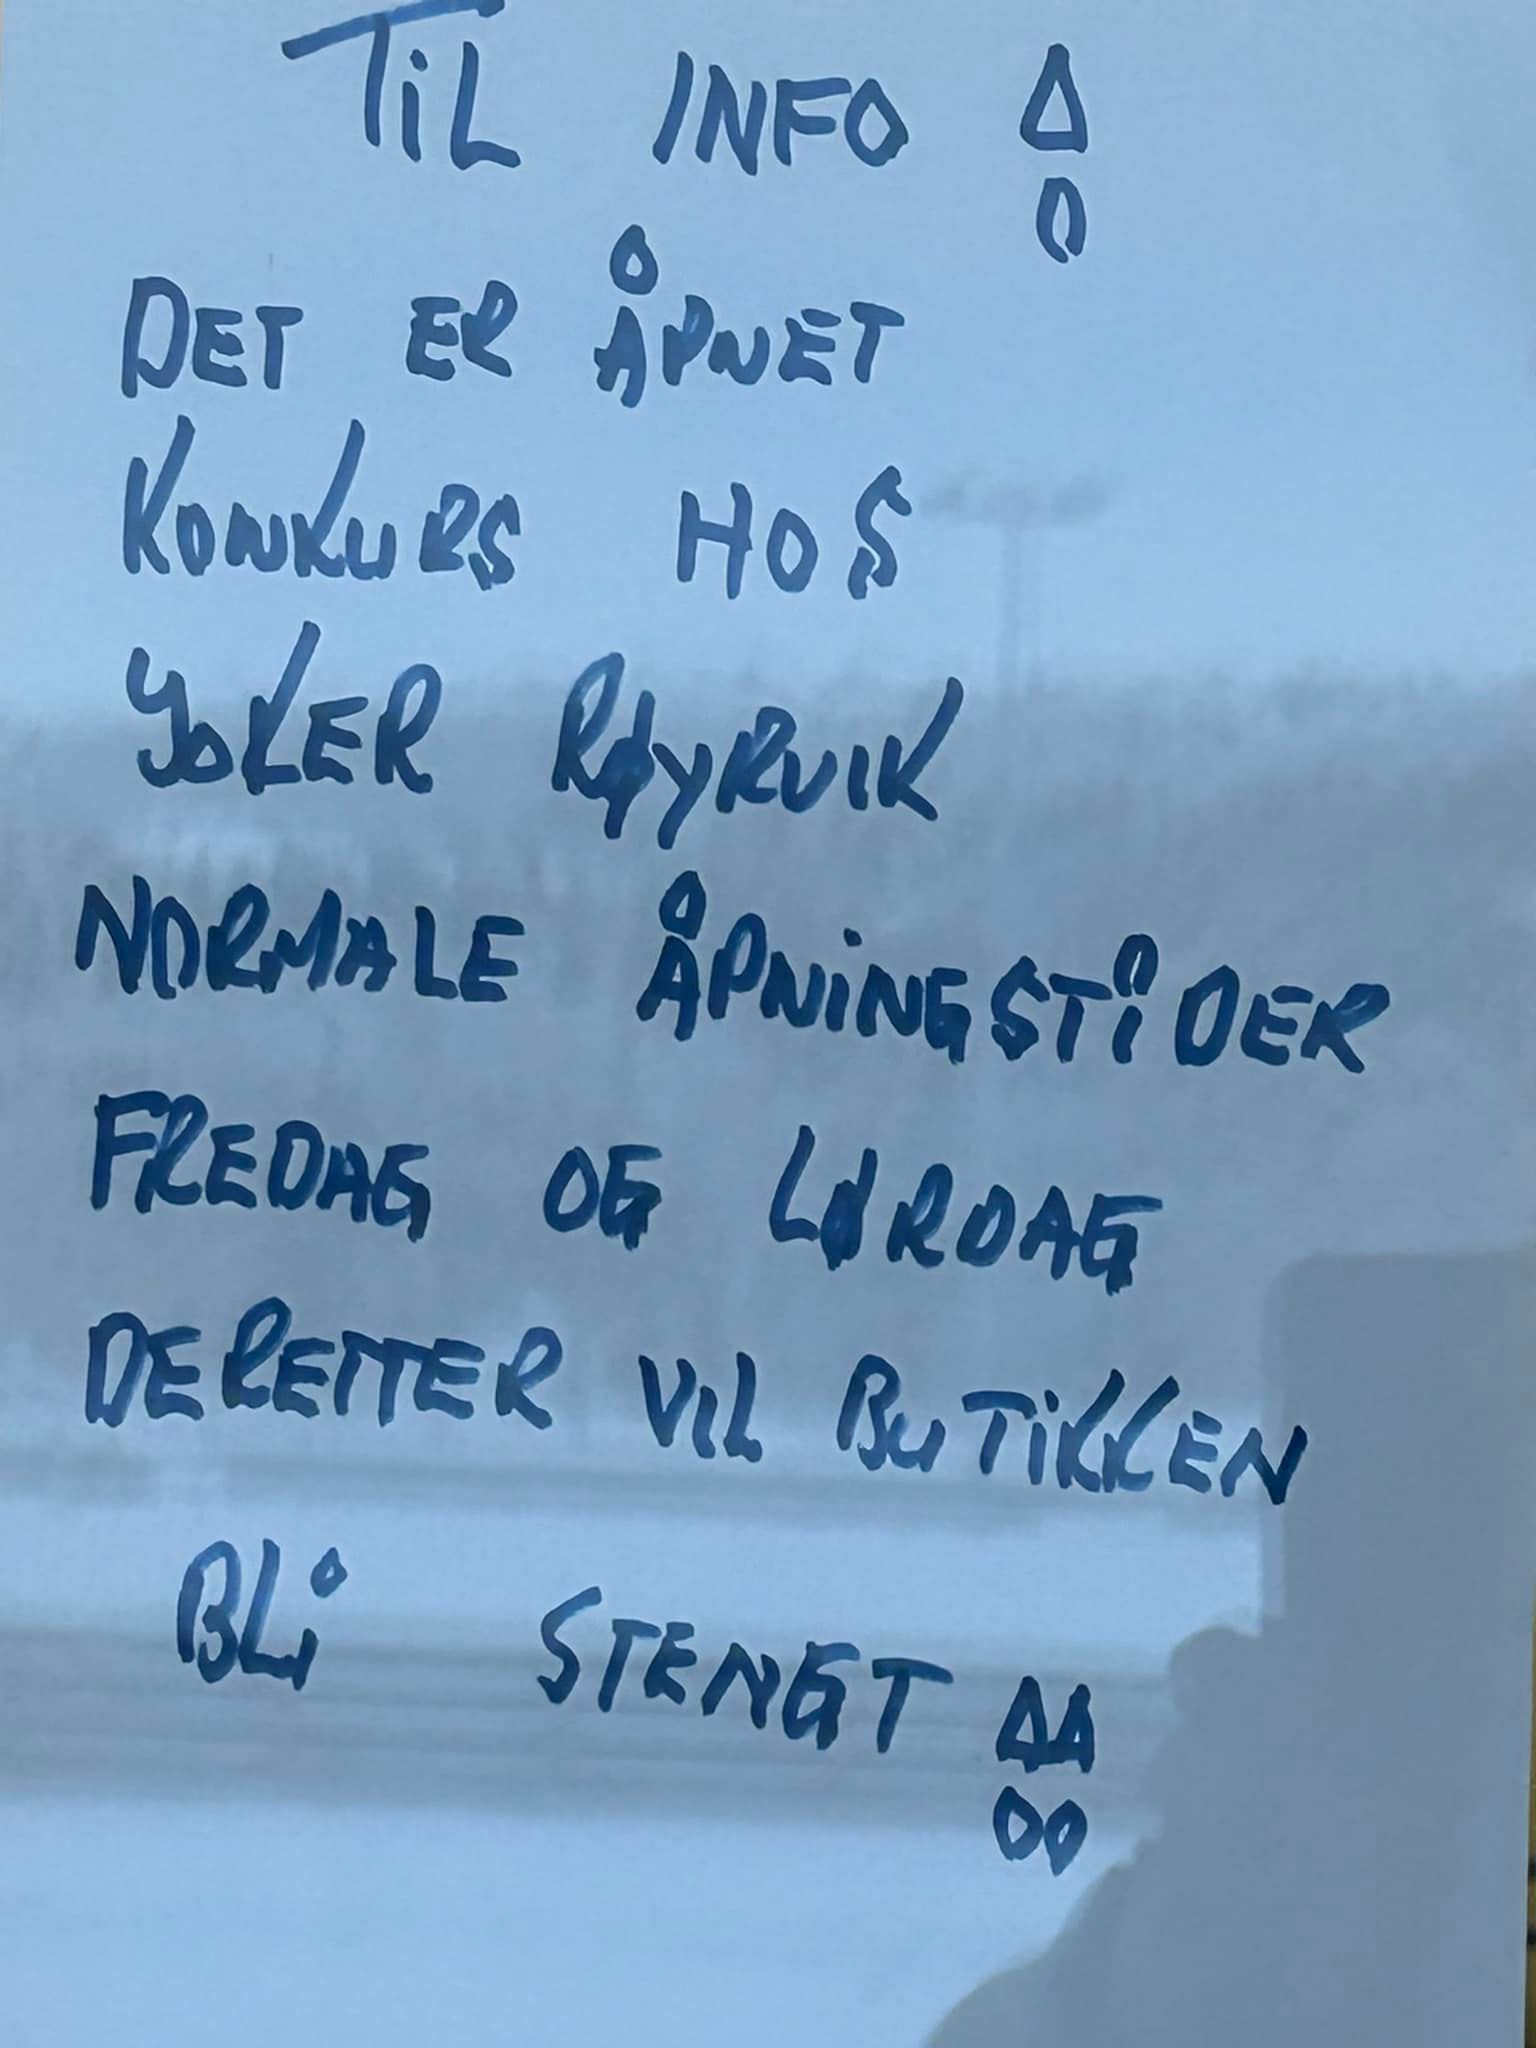 TIL INFO !
DET ER ÅPNET
KONKURS HOS
JOKER RØYRVIK
NORMALE ÅPNINGSTIDER
FREDAG OG LØRDAG
DERETTER VIL BUTIKKEN
BLI STENGT !!